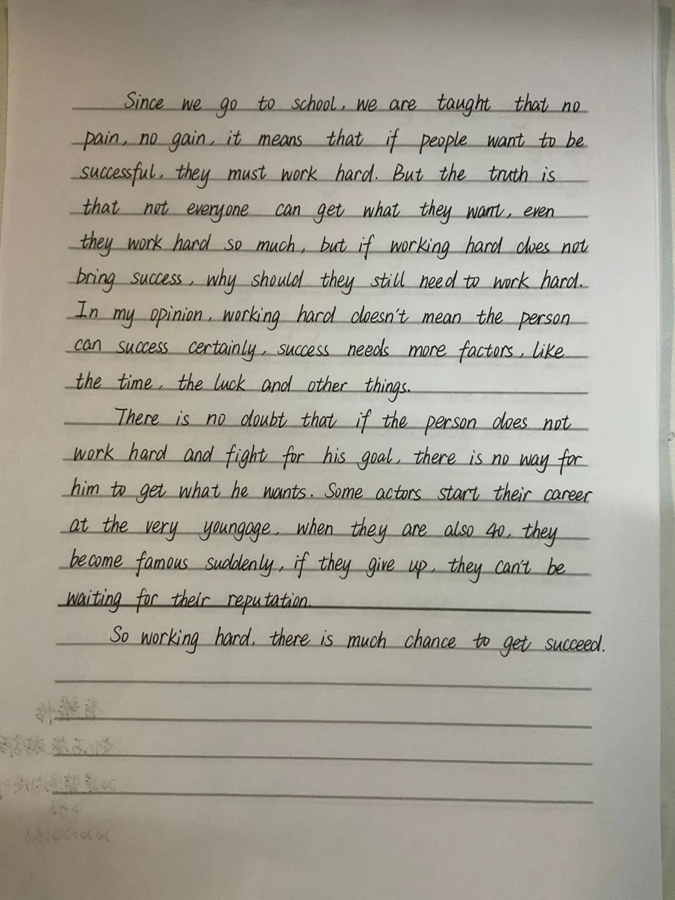 Since we go to school, we are taught that no
pain, no gain, it means that if people want to be
successful, they must work hard. But the truth is
that not everyone can get what they want, even
they work hard so much, but if working hard does not
bring success, why should they still need to work hard.
In my opinion, working hard doesn't mean the person
can success certainly, success needs more factors, like
the time, the luck and other things.
There is no doubt that if the person does not
work hard and fight for his goal, there is no way for
him to get what he wants. Some actors start their career
at the very youngage, when they are also 40, they
become famous suddenly, if they give up, they can't be
waiting for their reputation.
So working hard, there is much chance to get succeed.